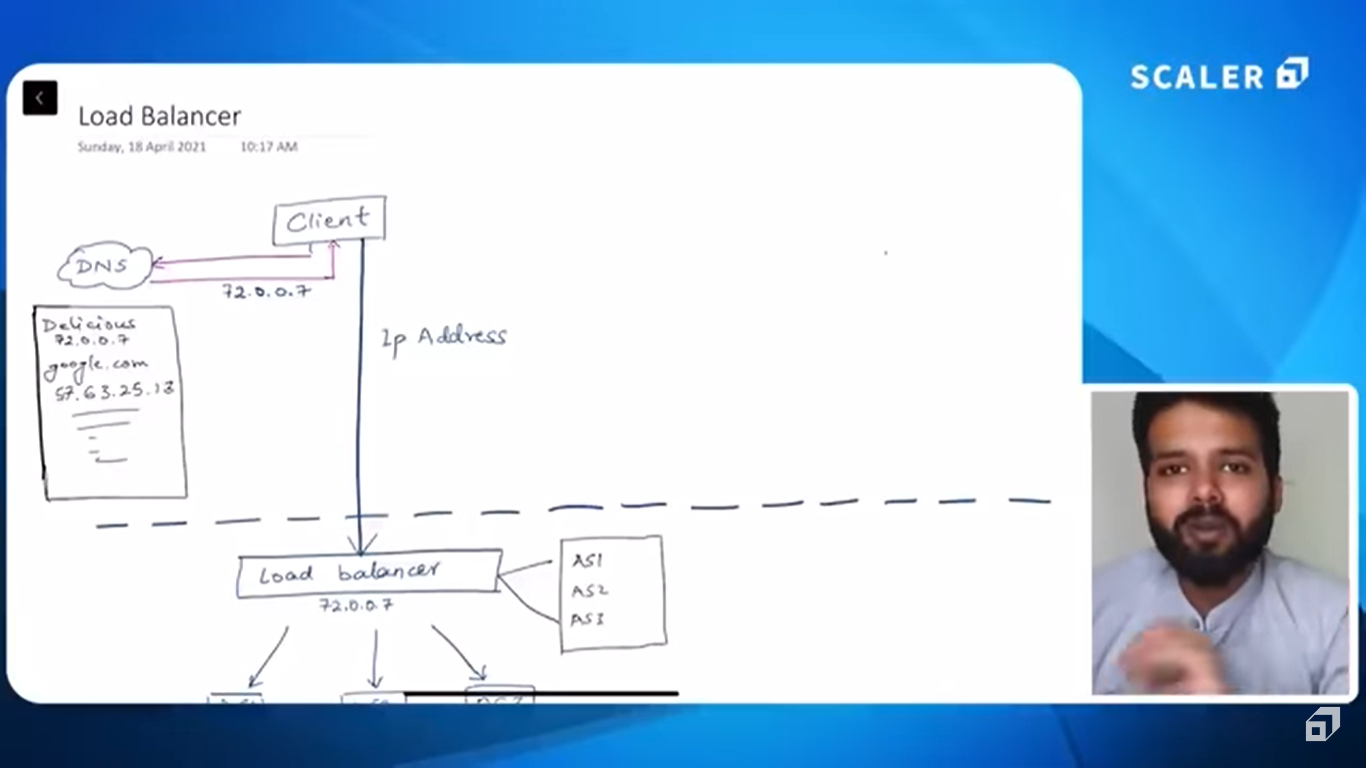 SCALER
Load Balancer
Sunday, 18 April 2021 10:17 AM
Client
DNS
72.0.0.7
Delicious
72.0.0.7
google.com
57.63.25.13
Ip Address
Load balancer
72.0.0.7
AS1
AS2
AS3